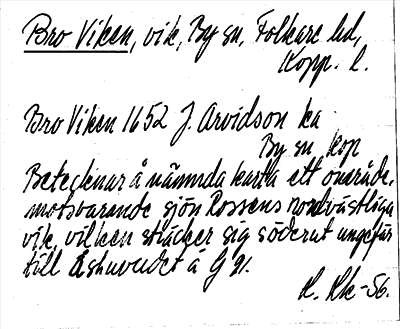 Bro Viken, vik, By sn, Folkare hd,
Kopp. l.
Bro Viken 1652 J. Arvidson ka
By sn Kop
Betecknar å nämnda karta ett område,
motsvarande sjön Rossens nordvästliga
vik, vilken sträcker sig söderut ungefär
till Åshuvudet å G 91.
K. Hk-56.